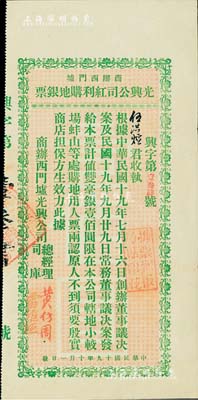 商辦西門墟
光興公司紅利購地銀票
興字第 號
君收執
根據中華民國十九年七月十六日創辦董事議決
案及民國十九年九月廿九日常務董事議決案發
給本票計值雙毫銀壹佰圓限在本公司轄地小較
場蚌山等處購地用人票兩認原人不到須要殷實
商店担保方生效力此據
商辦西門墟光興公司
總經理
司庫
中華民國十九年十月一日發